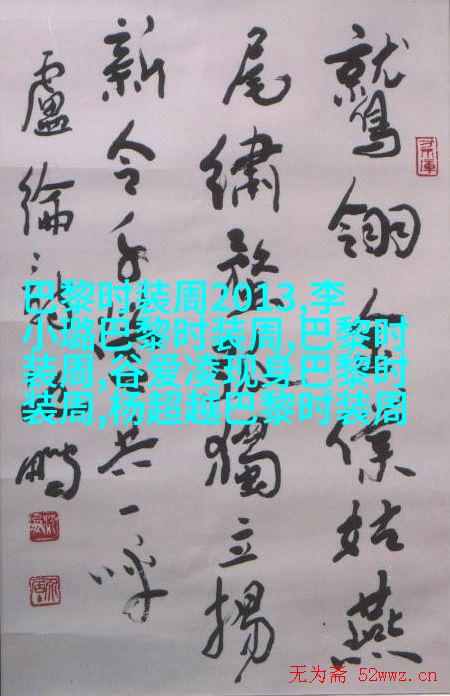 鷲翎金僕姑燕
尾繡蝥弧獨立揚
新令千營共一呼
盧綸詩鵬
巴黎时装周2013,李
小璐巴黎时装周,巴黎时
装周,谷爱凌现身巴黎时
装周,杨超越巴黎时装周
无为斋 52wwz.cn